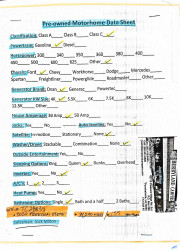 Pre-owned Motorhome Data Sheet
Classification: Class A___ Class B___ Class C ✓
Powertrain: Gasoline ✓ Diesel___
Horsepower: 300___ 340___ 350___ 360___ 380___ 400___
450___ 500___ 600___ 605___ 625___ Other ✓
Chassis: Ford ✓ Chevy___ Workhorse___ Dodge___ Mercedes___
Spartan___ Freightliner___ Powerglide___ Roadmaster___ Other___
Generator Brand: Onan ✓ Generac___ Powertec___
Generator KW Size: 4K ✓ 5.5K___ 6K___ 7.5K___ 8K___ 10K___
12.5K___ Other___
House Amperage: 30 Amp ✓ 50 Amp___
Jacks: Yes___ No ✓ Auto leveling: Yes___ No ✓
Satellite: In-motion___ Stationary___ None ✓
Washer/Dryer: Stackable___ Combination___ None ✓
Outside Entertainment: Yes___ No ✓
Sleeping Options: King___ Queen ✓ Bunks___ Overhead ✓
Inverter: Yes___ No ✓
A/C'S: 1 ✓ 2___ 3___
Heat Pump: Yes___ No ✓
Bathroom Options: Single ✓ Bath and a half___ 2 Baths___